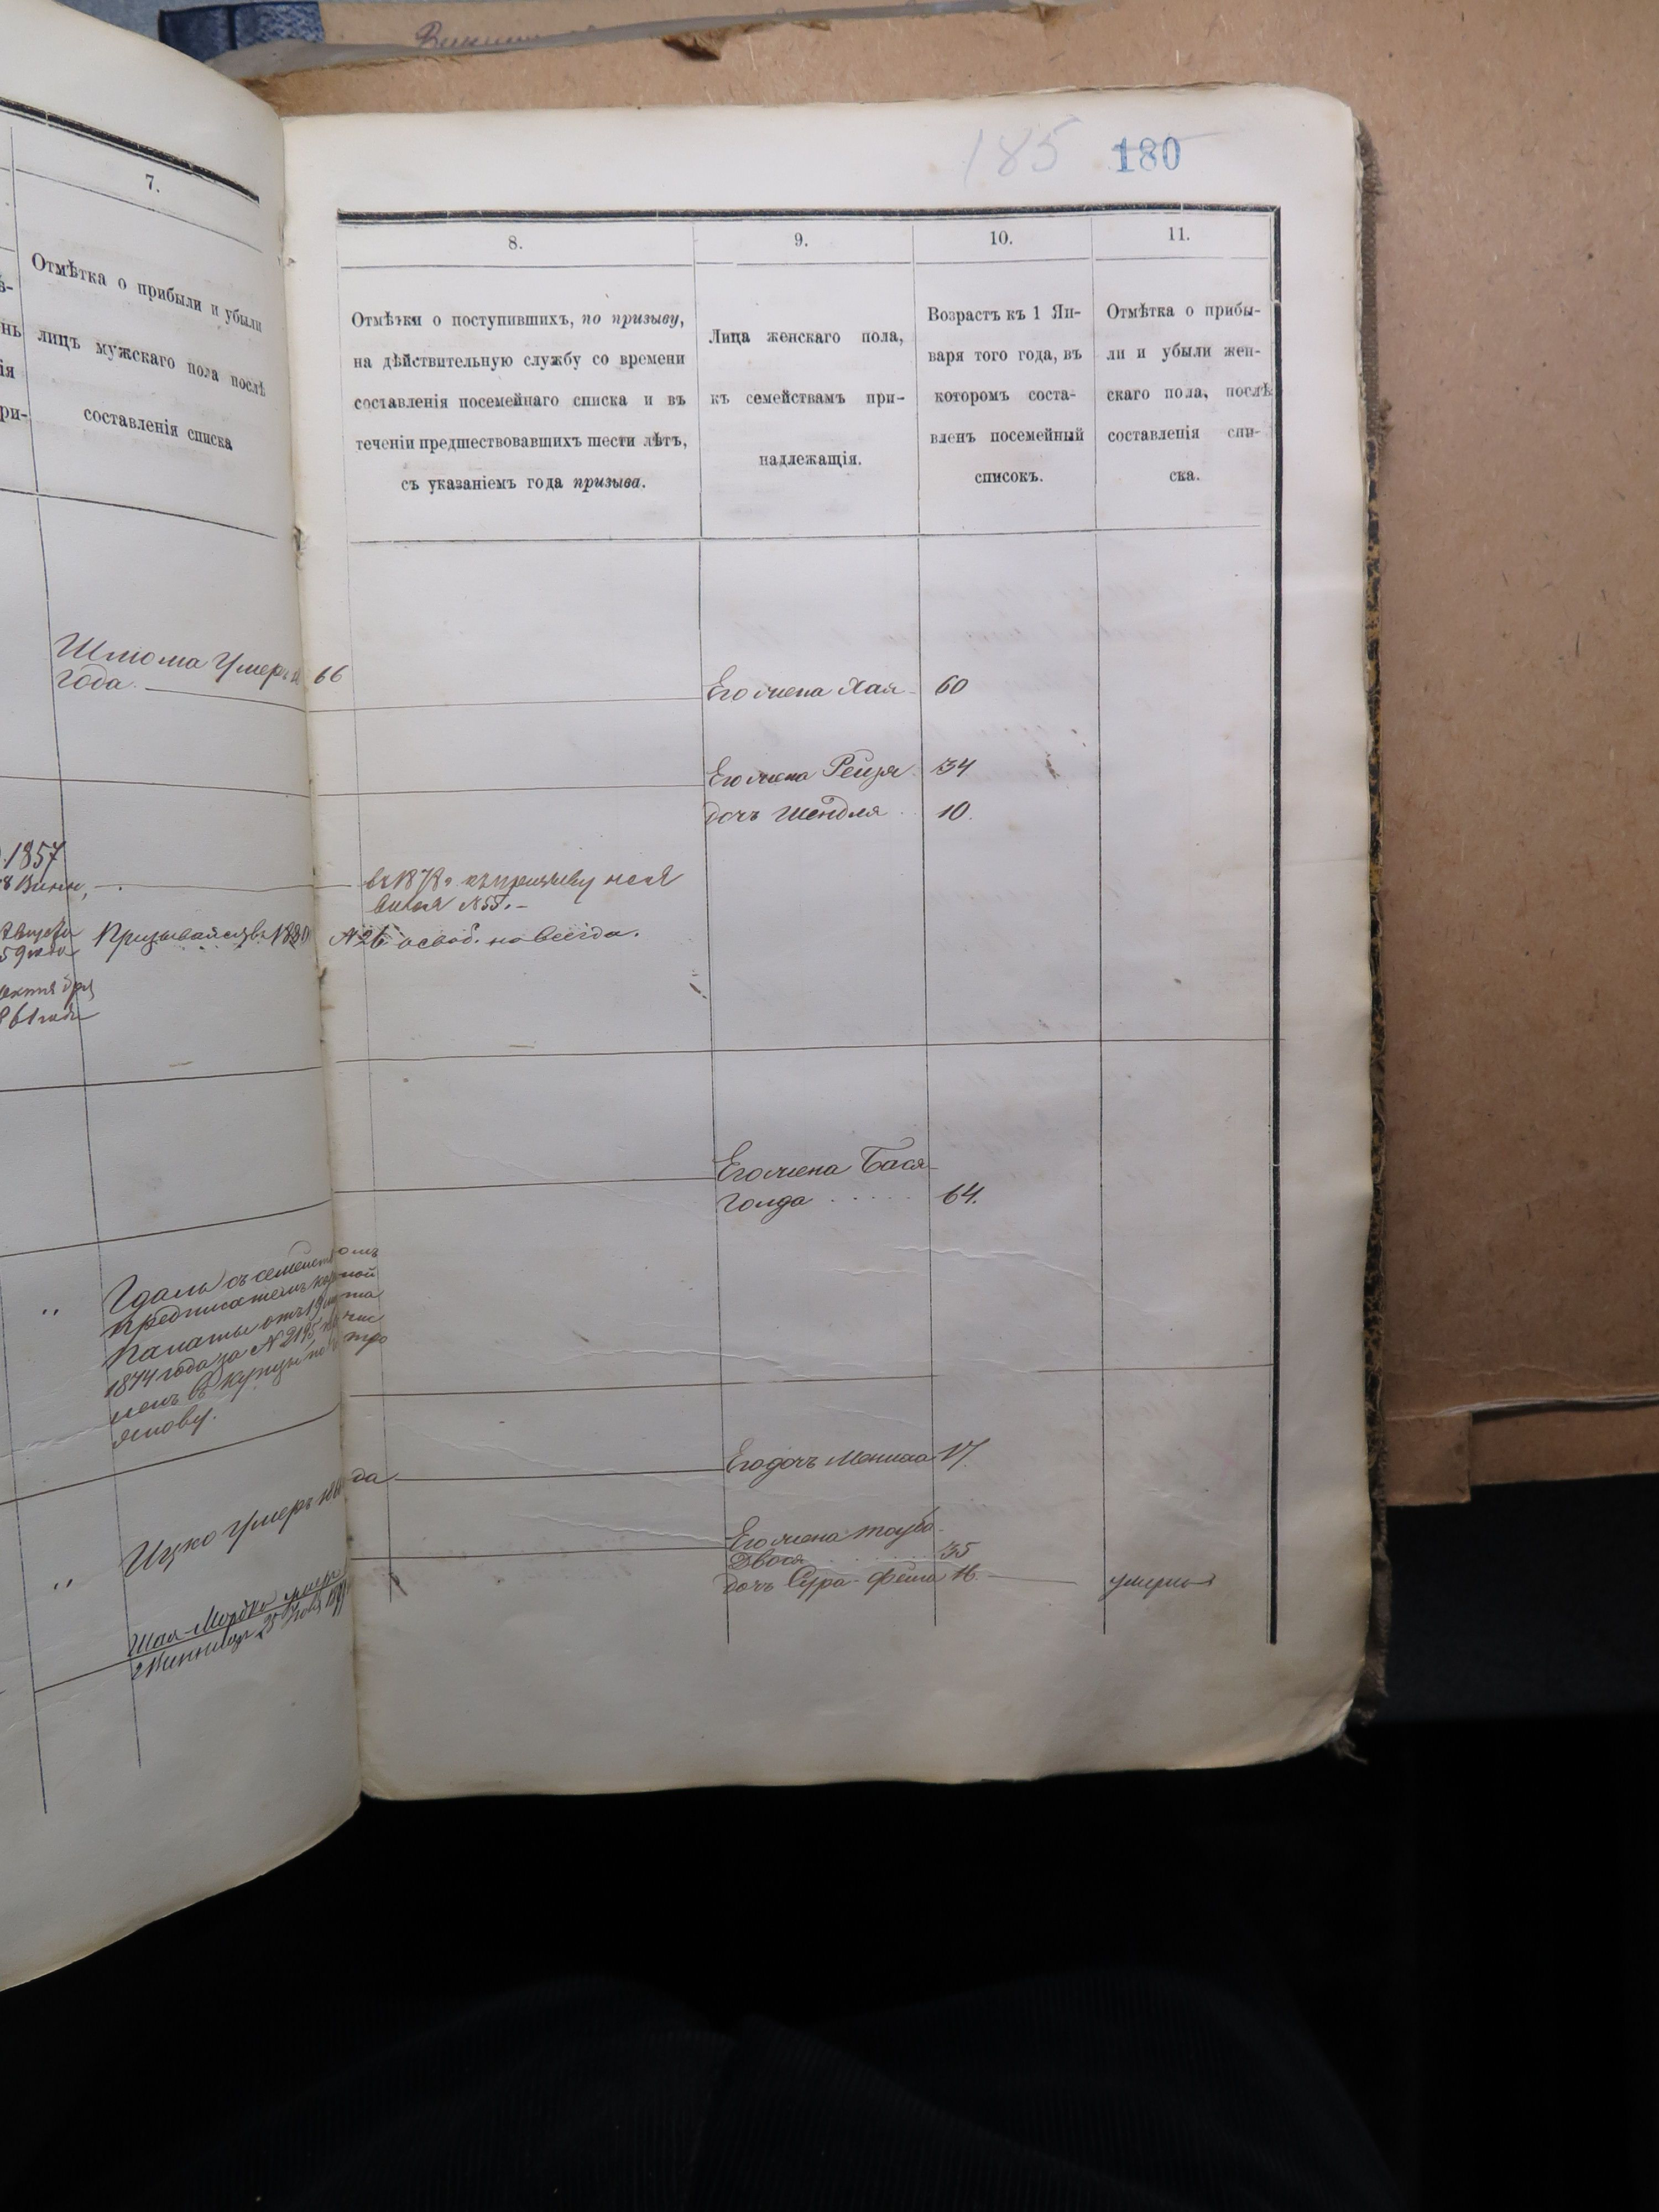 185 180
7.
Отмѣтка о прибыли и убыли
лицъ мужскаго пола послѣ
составленія списка
8.
Отмѣтки о поступившихъ, по призыву,
на дѣйствительную службу со времени
составленія посемейнаго списка и въ
теченіи предшествовавшихъ шести лѣтъ,
съ указаніемъ года призыва.
9.
Лица женскаго пола,
къ семействамъ при-
надлежащія.
10.
Возрастъ къ 1 Ян-
варя того года, въ
которомъ соста-
вленъ посемейный
списокъ.
11.
Отмѣтка о прибы-
ли и убыли жен-
скаго пола, послѣ
составленія спи-
ска.
Шлiома Умеръ 66
года.
Его жена Хая 60
Его жена Рейзя 34
дочь Шендля 10.
1857
въ 1878 г. къ призыву не яв
вился № 55.
Призывался въ 1880 № 26 освоб. навсегда.
Его жена Бася
Голда 64.
Гдаль съ семействомъ
предписаніемъ казенной
Палаты отъ 19
1874 года за № 2195
ленъ въ купцы по
Его дочь 17.
Ицко Умеръ
Его жена Тауба
Двося 35
дочь Сура-Фейга 16. умерла
Шая-Мордко умеръ